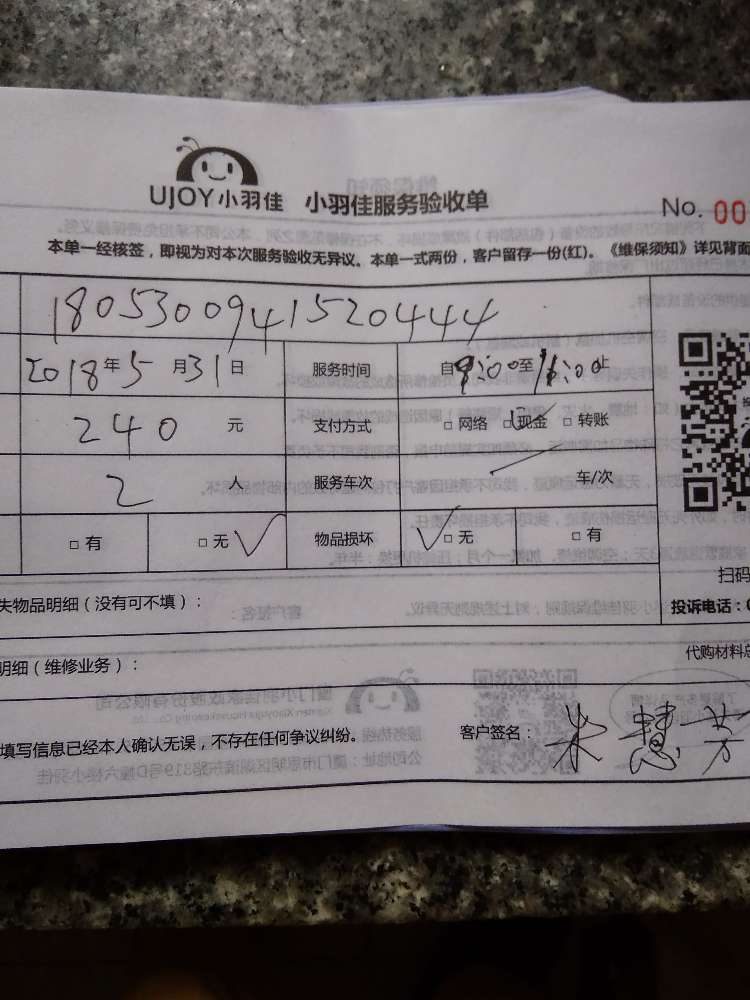 UJOY小羽佳 小羽佳服务验收单
No. 00
本单一经核签，即视为对本次服务验收无异议。本单一式两份，客户留存一份(红)。《维保须知》详见背面
1805300941520444
2018年5月31日 服务时间 自9:00至11:00止
240元 支付方式 □网络 □现金 □转账
2人 服务车次 车/次
□有 □无 物品损坏 □无 □有
扫码
失物品明细（没有可不填）：
投诉电话：
明细（维修业务）：
代购材料总
填写信息已经本人确认无误，不存在任何争议纠纷。 客户签名：朱慧芳